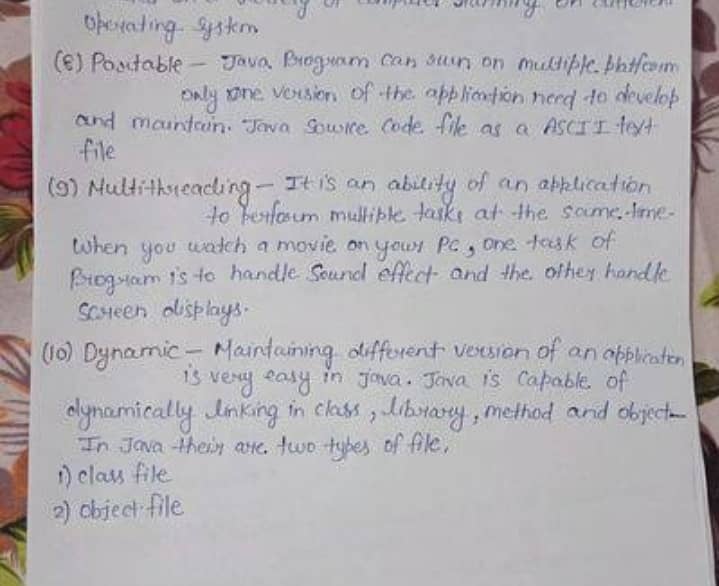 Operating System
(8) Portable - Java Program can run on multiple platform
only one version of the application need to develop
and maintain. Java Source Code file as a ASCII text
file
(9) Multithreading - It is an ability of an application
to perform multiple tasks at the same time.
When you watch a movie on your PC, one task of
Program is to handle Sound effect and the other handle
Screen displays.
(10) Dynamic - Maintaining different version of an application
is very easy in Java. Java is Capable of
dynamically linking in class, library, method and object
In Java their are two types of file,
1) class file
2) object file